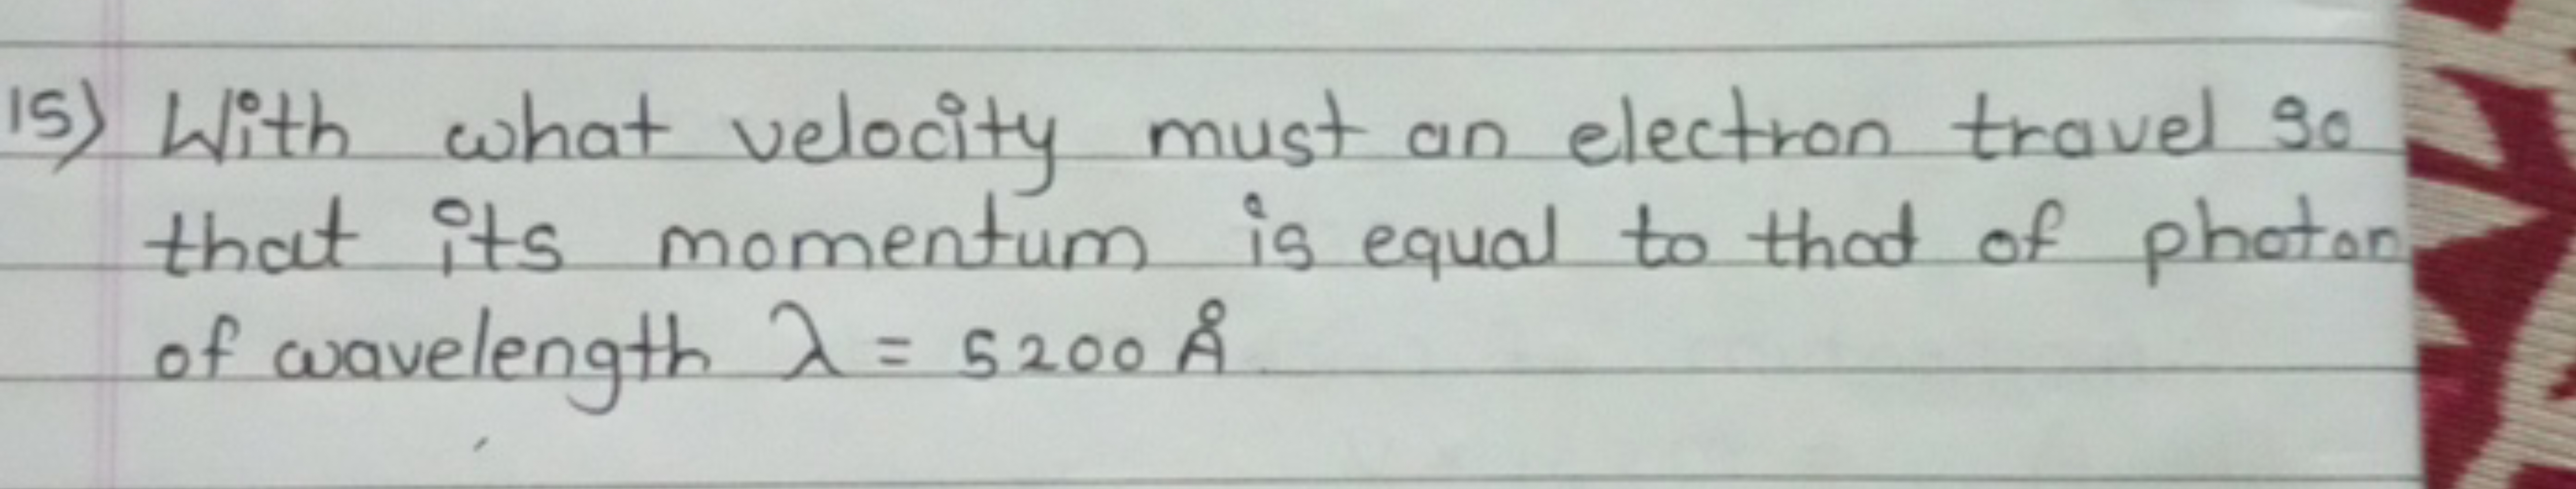 15) With what velocity must an electron travel so
that its momentum is equal to that of photon
of wavelength λ = 5200 Å